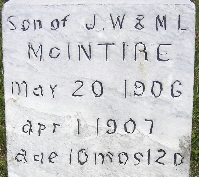 Son of J.W & M L
McINTIRE
May 20 1906
apr 1 1907
age 10 mos 12 D